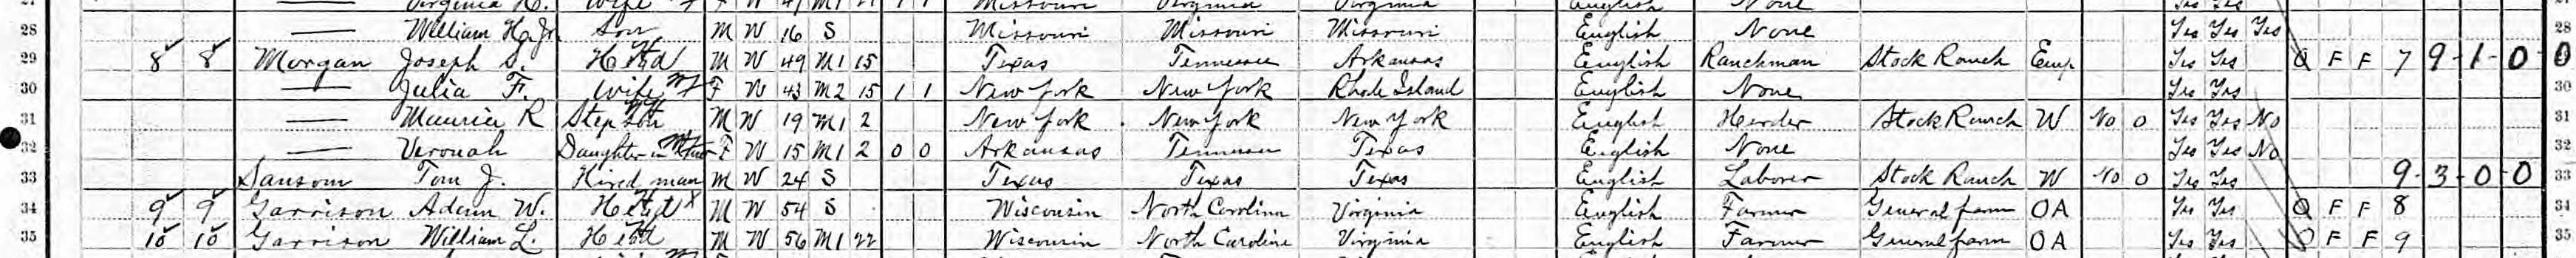 Virginia H. Wife F W 47 M1 21 1 1 Missouri Virginia Virginia English None Yes Yes
28 — William H. Jr. Son M W 16 S Missouri Missouri Missouri English None Yes Yes Yes 28
29 8 8 Morgan Joseph S. Head M W 49 M1 15 Texas Tennessee Arkansas English Ranchman Stock Ranch Emp Yes Yes O F F 7 9-1-0-0
30 — Julia F. Wife F W 43 M2 15 1 1 New York New York Rhode Island English None Yes Yes 30
31 — Maurice R Step Son M W 19 M1 2 New York New York New York English Herder Stock Ranch W No 0 Yes Yes No 31
32 — Verouah Daughter in F W 15 M1 2 0 0 Arkansas Tennessee Texas English None Yes Yes No 32
33 Sansom Tom J. Hired man M W 24 S Texas Texas Texas English Laborer Stock Ranch W No 0 Yes Yes 9-3-0-0 33
34 9 9 Garrison Adam W. Head M W 54 S Wisconsin North Carolina Virginia English Farmer General farm OA Yes Yes O F F 8 34
35 10 10 Garrison William L. Head M W 56 M1 22 Wisconsin North Carolina Virginia English Farmer General farm OA Yes Yes O F F 9 35